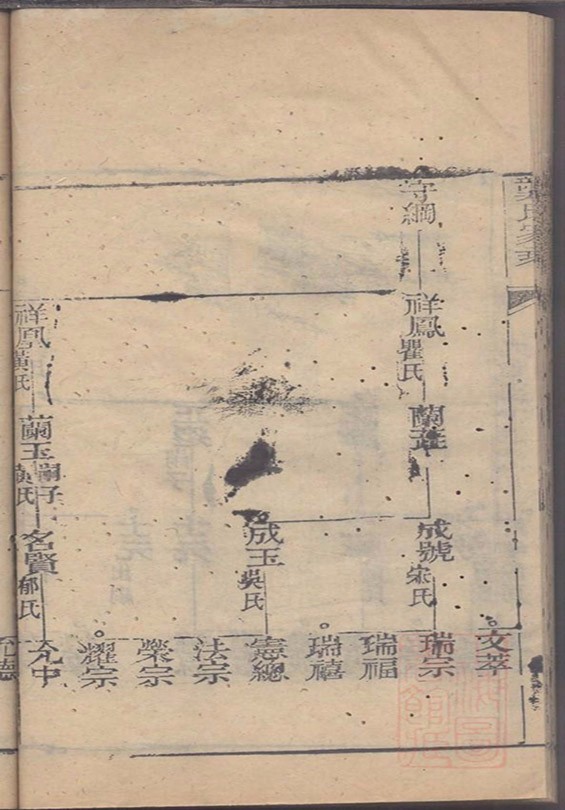 守綱
祥鳳
瞿氏
蘭
成號
宋氏
文萃
瑞宗
瑞福
瑞禧
成玉
吳氏
憲總
法宗
榮宗
耀宗
祥鳳
黃氏
蘭玉
嗣子
黃氏
名賢
郁氏
允中
允德